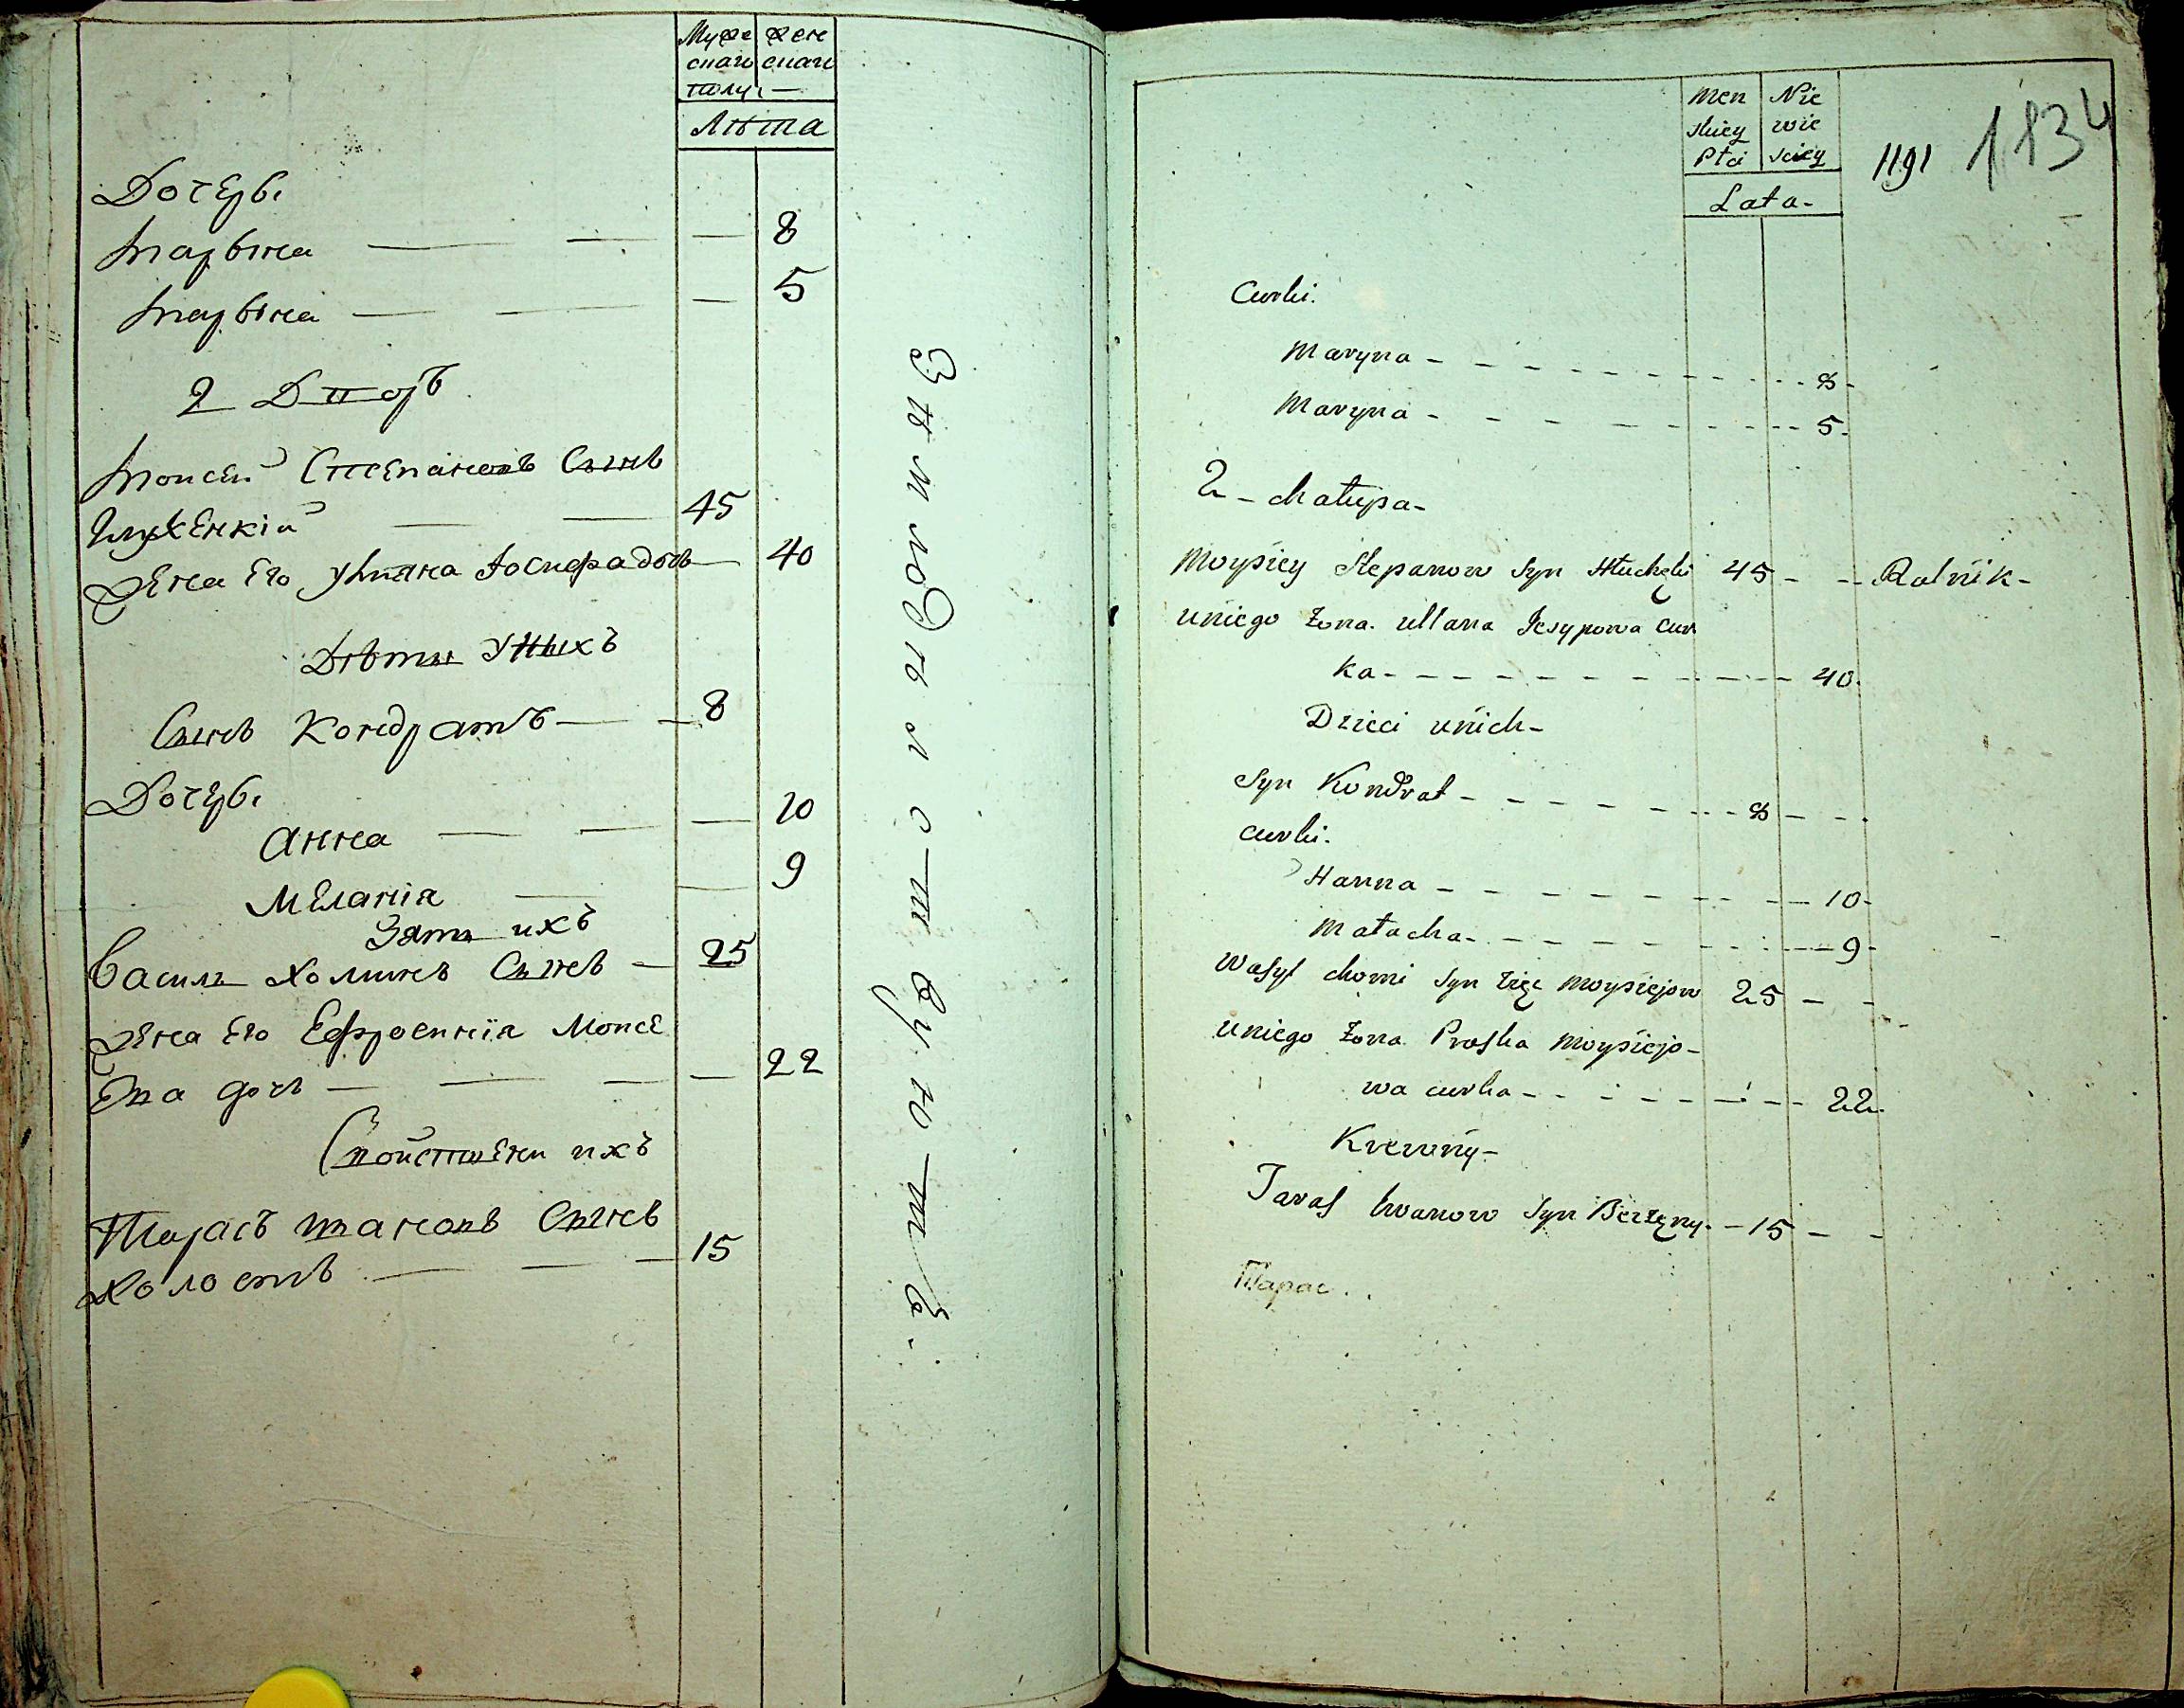 Мужескаго женскаго
полу
Лѣта
Дочери
Марына — — — 8
Марына — — — 5
2 Дворъ
Моисей Степановъ Сынъ
— — 45
Жена Его Ульяна дочь — 40
Дѣти у ныхъ
Сынъ Кондратъ — — 8
Дочери
Анна — — — 10
Меланія — — 9
Зять ихъ
Василь Хоминъ Сынъ — 25
Жена Его Ефросинія Моисе
ева дочь — — — — 22
Свойственн ихъ
Тарасъ Ивановъ Сынъ
Холостъ — — — 15
Men
skiey
Płci
Nie
wie
sciey
Lata-
1191
1834
Curki.
Maryna - - - 8-
Maryna - - - 5.
2 - chałupa-
Moysiey Stepanow Syn 45 - - Rolnik-
uniego Żona. Ullana Jesypowa Cur
ka - - - 40.
Dzieci unich-
Syn Kondrat - - - 8 - -
curki.
Hanna - - - 10-
Małacha - - - 9-
Wasyl chomi Syn zięć Moysiejow 25 - -
uniego Żona Praska Moysiejo-
wa curka - - - 22.
Krewny-
Taras Iwanow Syn Bezżenny. - 15 - -
Тарас..